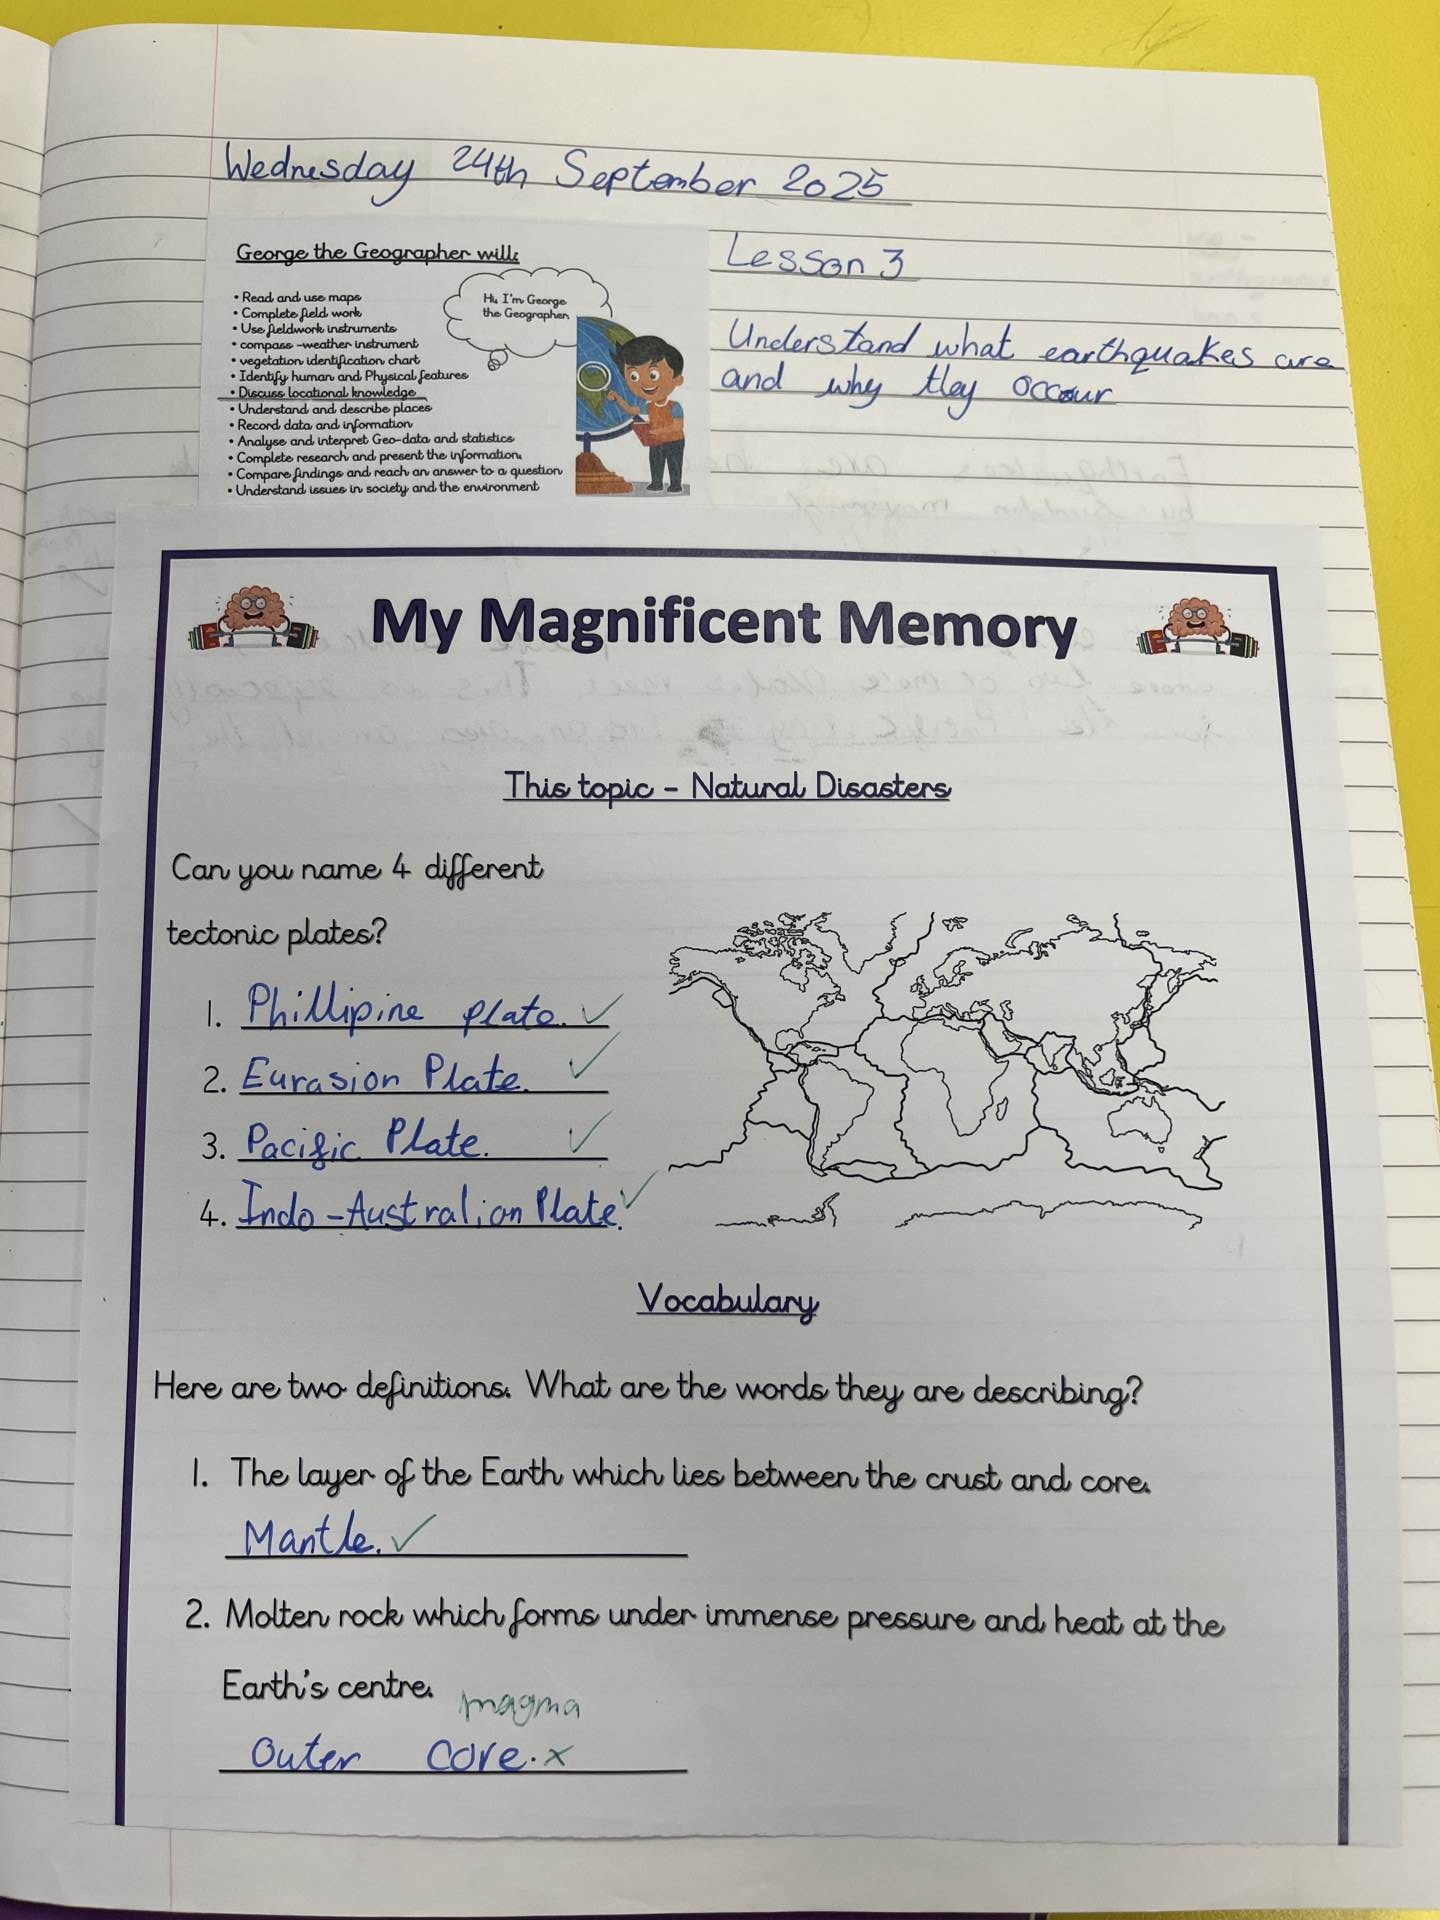 Wednesday 24th September 2025
George the Geographer will:
• Read and use maps
• Complete field work
• Use fieldwork instruments
• compass -weather instrument
• vegetation identification chart
• Identify human and Physical features
• Discuss locational knowledge
• Understand and describe places
• Record data and information
• Analyse and interpret Geo-data and statistics
• Complete research and present the information.
• Compare findings and reach an answer to a question
• Understand issues in society and the environment
Hi, I'm George
the Geographer.
Lesson 3
Understand what earthquakes are
and why they occour
My Magnificent Memory
This topic - Natural Disasters
Can you name 4 different
tectonic plates?
1. Phillipine plate. ✓
2. Eurasion Plate. ✓
3. Pacific Plate. ✓
4. Indo-Australian Plate. ✓
Vocabulary
Here are two definitions. What are the words they are describing?
1. The layer of the Earth which lies between the crust and core.
Mantle. ✓
2. Molten rock which forms under immense pressure and heat at the
Earth's centre.
magma
Outer core. x